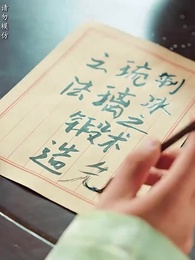 请勿模仿
制冰之术
琉璃锻造
之法